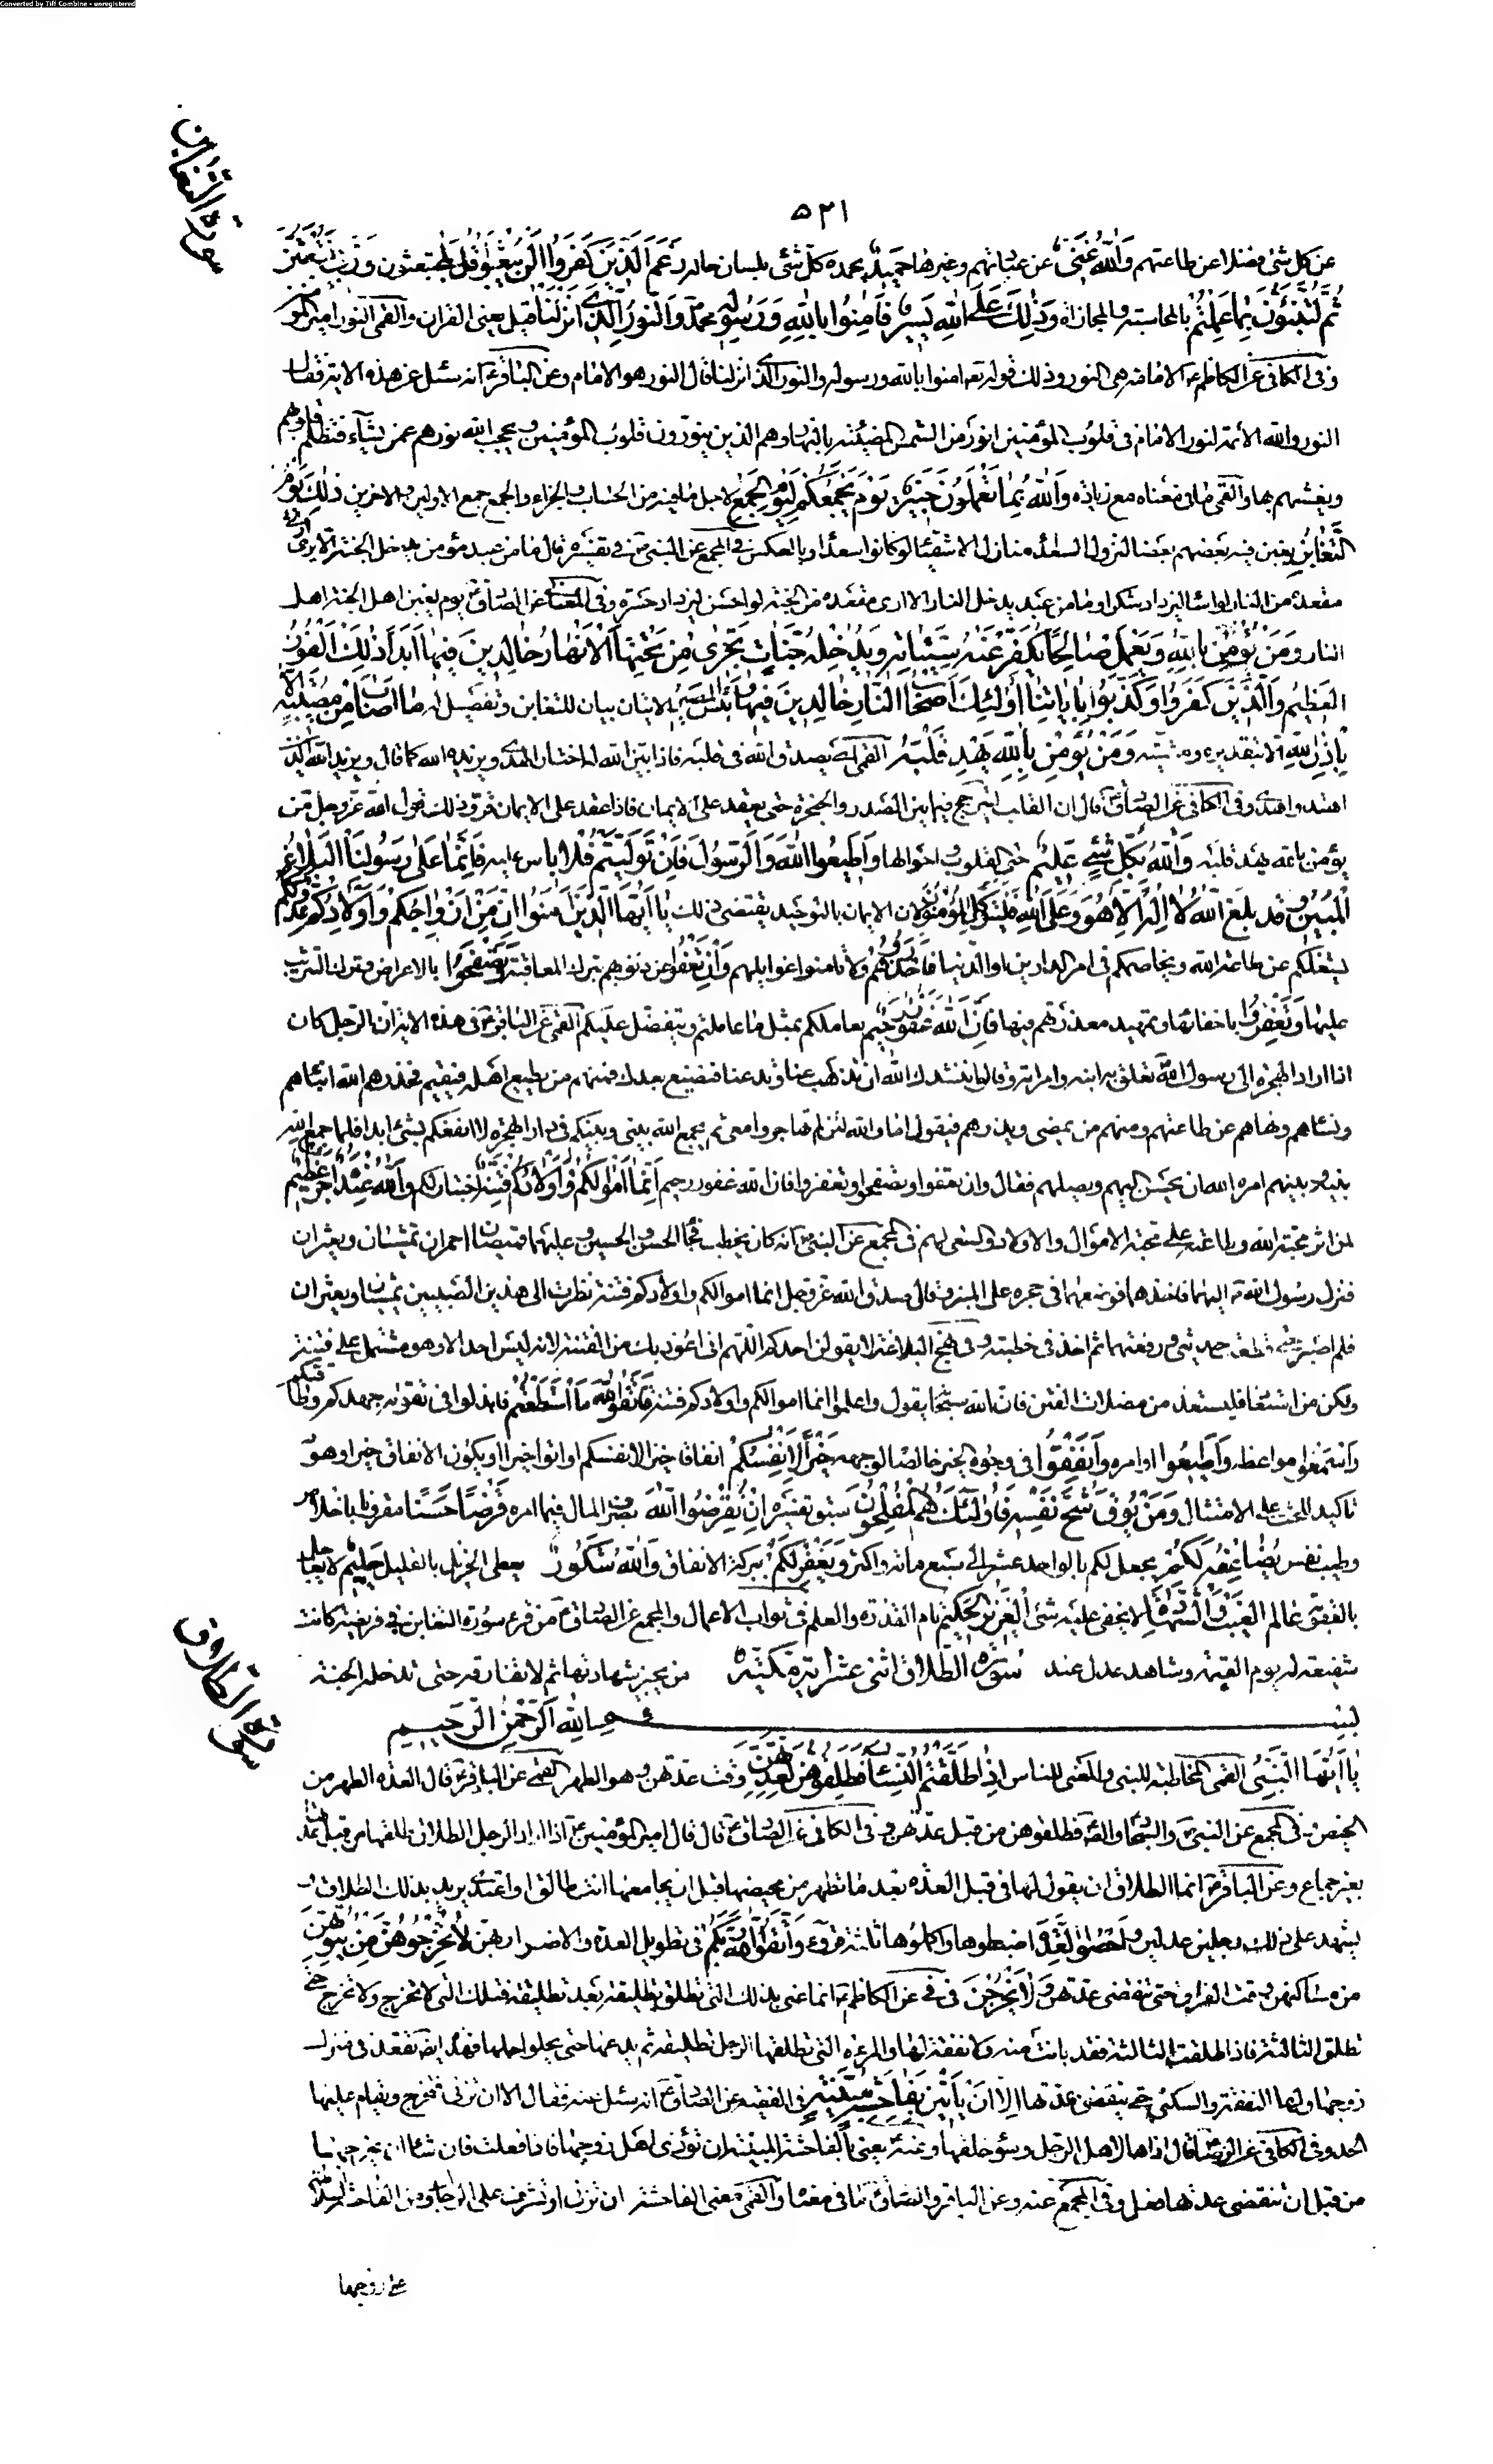 Converted by Tiff Combine - unregistered
سورة التغابن
٥٢١
عن كل شئ فضلا عن طاعتهم وَاللهُ غَنِيٌّ عن عبادتهم وغيرها حَمِيدٌ يحمده كل شئ بلسان حاله زَعَمَ الَّذِينَ كَفَرُوا اَنْ لَنْ يُبْعَثُوا قُلْ بَلى تبعثون وَرَبّي لَتُبْعَثُنَّ
ثُمَّ لَتُنَبَّئُونَّ بِمَا عَمِلْتُمْ بالمحاسبة والمجازاة وَذلِكَ عَلَى اللهِ يَسِيرٌ فَامِنُوا بِاللهِ وَرَسُولِهِ محمد وَالنُّورِ الَّذِي اَنْزَلْنَا قيل يعنى القران والقمى النور امير المؤمنين
وفى الكافى عن الكاظم ع الامامة هى النور وذلك قوله تعالى امنوا بالله ورسوله والنور الذى انزلنا قال النور هو الامام وعن الباقر ع انه سئل عن هذه الاية فقال
النور والله الائمة لنور الامام فى قلوب المؤمنين انور من الشمس المضيئة بالنهار وهم الذين ينورون قلوب المؤمنين ويحجب الله نورهم عمن يشاء فتظلم قلوبهم
ويغشيهم بها والقمى مافى معناه مع زيادة وَاللهُ بِمَا تَعْمَلُونَ خَبِيرٌ يَوْمَ يَجْمَعُكُمْ لِيَوْمِ الْجَمْعِ لاجل ما فيه من الحساب والجزاء والجمع جمع الاولين والاخرين ذلِكَ يَوْمُ
التَّغَابُنِ يغبن فيه بعضهم بعضا لنزول السعداء منازل الاشقياء لو كانوا سعداء وبالعكس فى المجمع عن النبى ص فى تفسيره قال ما من عبد مؤمن يدخل الجنة الا يرى
مقعده من النار لو اساء ليزداد شكرا وما من عبد يدخل النار الا ارى مقعده من الجنة لو احسن ليزداد حسرة وفى المعانى عن الصادق ع يوم يغبن اهل الجنة اهل
النار وَمَنْ يُؤْمِنْ بِاللهِ وَيَعْمَلْ صَالِحًا يُكَفِّرْ عَنْهُ سَيِّئَاتِهِ وَيُدْخِلْهُ جَنَّاتٍ تَجْرِى مِنْ تَحْتِهَا الْاَنْهَارُ خَالِدِينَ فِيهَا اَبَدًا ذلِكَ الْفَوْزُ
الْعَظِيمُ وَالَّذِينَ كَفَرُوا وَكَذَّبُوا بِايَاتِنَا اُولئِكَ اَصْحَابُ النَّارِ خَالِدِينَ فِيهَا وَبِئْسَ الْمَصِيرُ الايتان بيان للتغابن وتفصيل له مَا اَصَابَ مِنْ مُصِيبَةٍ اِلَّا
بِاِذْنِ اللهِ الا بتقديره ومشيته وَمَنْ يُؤْمِنْ بِاللهِ يَهْدِ قَلْبَهُ القمى اى يصدق الله فى قلبه فاذا بين الله له اختار الهدى ويزيده الله كما قال ويزيد الله الذين
اهتدوا هدى وفى الكافى عن الصادق ع قال ان القلب ليترجج فيما بين الصدر والحنجرة حتى يعقد على الايمان فاذا عقد على الايمان قر وذلك قول الله عز وجل من
يؤمن بالله يهد قلبه وَاللهُ بِكُلِّ شَئٍ عَلِيمٌ حتى القلوب واحوالها وَاَطِيعُوا اللهَ وَاَطِيعُوا الرَّسُولَ فَاِنْ تَوَلَّيْتُمْ فلا باس عليه فَاِنَّمَا عَلى رَسُولِنَا الْبَلَاغُ
الْمُبِينُ وقد بلغ اَللهُ لَا اِلهَ اِلَّا هُوَ وَعَلَى اللهِ فَلْيَتَوَكَّلِ الْمُؤْمِنُونَ لان الايمان بالتوحيد يقتضى ذلك يَا اَيُّهَا الَّذِينَ امَنُوا اِنَّ مِنْ اَزْوَاجِكُمْ وَاَوْلَادِكُمْ عَدُوًّا لَكُمْ
يشغلكم عن طاعة الله ويخاصمكم فى امر الدين او الدنيا فَاحْذَرُوهُمْ ولا تامنوا غوايلهم وَاِنْ تَعْفُوا عن ذنوبهم بترك المعاقبة وَتَصْفَحُوا بالاعراض وترك التثريب
عليها وَتَغْفِرُوا باخفائها وتمهيد معذرتهم فيها فَاِنَّ اللهَ غَفُورٌ رَحِيمٌ يعاملكم بمثل ما عاملتم ويتفضل عليكم القمى عن الباقر ع فى هذه الاية ان الرجل كان
اذا اراد الهجرة الى رسول الله ص تعلق به ابنه وامراته وقالوا ننشدك الله ان تذهب عنا وتدعنا فنضيع بعدك فمنهم من يطيع اهله فيقيم فحذرهم الله ابناءهم
ونساءهم ونهاهم عن طاعتهم ومنهم من يمضى ويذرهم فيقول اما والله لئن لم تهاجروا معى ثم يجمع الله بينى وبينكم فى دار الهجرة لا انفعكم بشئ ابدا فلما جمع الله
بينه وبينهم امره الله ان يحسن اليهم ويصلهم فقال وان تعفوا وتصفحوا وتغفروا فان الله غفور رحيم اِنَّمَا اَمْوَالُكُمْ وَاَوْلَادُكُمْ فِتْنَةٌ اختبار لكم وَاللهُ عِنْدَهُ اَجْرٌ عَظِيمٌ
لمن اثر محبة الله وطاعته على محبة الاموال والاولاد والسعى لهم فى المجمع عن النبى ص انه كان يخطب فجاء الحسن والحسين وعليهما قميصان احمران يمشيان ويعثران
فنزل رسول الله ص اليهما فاخذهما فوضعهما فى حجره على المنبر وقال صدق الله عز وجل انما اموالكم واولادكم فتنة نظرت الى هذين الصبيين يمشيان ويعثران
فلم اصبر حتى قطعت حديثى ورفعتهما ثم اخذ فى خطبته وفى نهج البلاغة لا يقولن احدكم اللهم انى اعوذ بك من الفتنة لانه ليس احد الا وهو مشتمل على فتنة
ولكن من استعاذ فليستعذ من مضلات الفتن فان الله سبحانه يقول واعلموا انما اموالكم واولادكم فتنة فَاتَّقُوا اللهَ مَا اسْتَطَعْتُمْ فابذلوا فى تقواه جهدكم وطاقتكم
وَاسْمَعُوا مواعظه وَاَطِيعُوا اوامره وَاَنْفِقُوا فى وجوه الخير خالصا لوجهه خَيْرًا لِاَنْفُسِكُمْ انفاقا خيرا لانفسكم او اتوا خيرا او يكون الانفاق خيرا وهو
تاكيد للحث على الامتثال وَمَنْ يُوقَ شُحَّ نَفْسِهِ فَاُولئِكَ هُمُ الْمُفْلِحُونَ سبق تفسيره اِنْ تُقْرِضُوا اللهَ بصرف المال فيما امره قَرْضًا حَسَنًا مقرونا باخلاص
وطيب نفس يُضَاعِفْهُ لَكُمْ يجعل لكم بالواحد عشرا الى سبع مائة واكثر وَيَغْفِرْ لَكُمْ ببركة الانفاق وَاللهُ شَكُورٌ يعطى الجزيل بالقليل حَلِيمٌ لا يعاجل
بالعقوبة عَالِمُ الْغَيْبِ وَالشَّهَادَةِ لا يخفى عليه شئ الْعَزِيزُ الْحَكِيمُ تام القدرة والعلم فى ثواب الاعمال والمجمع عن الصادق ع من قرء سورة التغابن فى فريضة كانت
شفيعة له يوم القيمة وشاهد عدل عند من يجيز شهادتها ثم لا تفارقه حتى تدخله الجنة
سورة الطلاق اثنتى عشر اية مكية
سورة الطلاق
بسم الله الرحمن الرحيم
يَا اَيُّهَا النَّبِيُّ القمى المخاطبة للنبى والمعنى للناس اِذَا طَلَّقْتُمُ النِّسَاءَ فَطَلِّقُوهُنَّ لِعِدَّتِهِنَّ وقت عدتهن وهو الطهر القمى عن الباقر ع قال العدة الطهر من
الحيض فى المجمع عن النبى ص والسجاد والصادق فطلقوهن من قبل عدتهن وفى الكافى عن الصادق ع قال قال امير المؤمنين ع اذا اراد الرجل الطلاق طلقها من قبل عدتها
بغير جماع وعن الباقر ع انما الطلاق ان يقول لها فى قبل العدة بعد ما تطهر من محيضها قبل ان يجامعها انت طالق او اعتدى يريد بذلك الطلاق و
يشهد على ذلك رجلين عدلين وَاَحْصُوا الْعِدَّةَ اضبطوها واكملوها ثلثة قروء وَاتَّقُوا اللهَ رَبَّكُمْ فى تطويل العدة والاضرار بهن لَا تُخْرِجُوهُنَّ مِنْ بُيُوتِهِنَّ
من مساكنهن وقت الفراق حتى تنقضى عدتهن وَلَا يَخْرُجْنَ فى فى عن الكاظم ع انما عنى بذلك التى تطلق تطليقة بعد تطليقة فتلك التى لا تخرج ولا تخرج حتى
تطلق الثالثة فاذا طلقت الثالثة فقد بانت منه ولا نفقة لها والمرءة التى تطلقها الرجل تطليقة ثم يدعها حتى يخلو اجلها فهذه ايضا تقعد فى منزل
زوجها ولها النفقة والسكنى حتى تنقضى عدتها اِلَّا اَنْ يَاْتِينَ بِفَاحِشَةٍ مُبَيِّنَةٍ فى الفقيه عن الصادق ع انه سئل عنه فقال الا ان تزنى فتخرج ويقام عليها
الحد وفى الكافى عن الرضا ع قال اذاها لاهل الرجل وسوء خلقها وعنه ع يعنى بالفاحشة المبينة ان تؤذى اهل زوجها فاذا فعلت فان شاء ان يخرجها
من قبل ان تنقضى عدتها فعل وفى المجمع عنه وعن الباقر والصادق ع ما فى معناه والقمى معنى الفاحشة ان تزنى او تشرف على الرجال ومن الفاحشة السلاطة
على زوجها